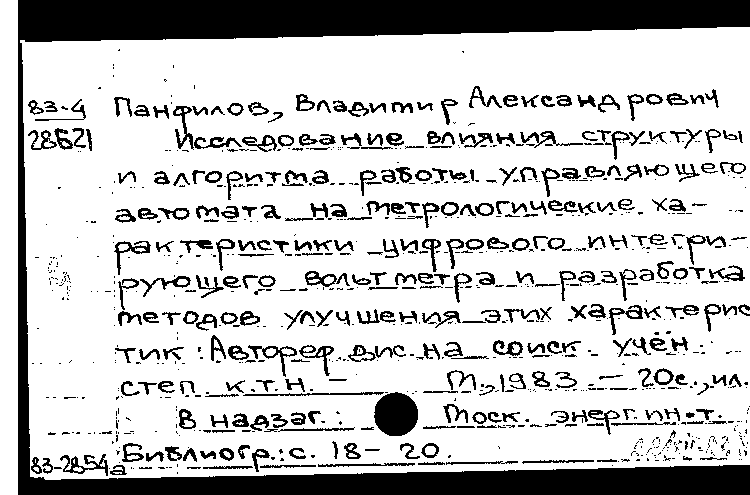 83-4 Панфилов, Владимир Александрович
28621 Исследование влияния структуры
и алгоритма работы управляющего
автомата на метрологические ха-
рактеристики цифрового интегри-
рующего вольтметра и разработка
методов улучшения этих характерис
тик : Автореф дис. на соиск. учён.
степ к.т.н. — М., 1983. — 20с., ил.
В надзаг.: Моск. энерг. ин-т.
Библиогр.: с. 18 – 20.
83-2854а